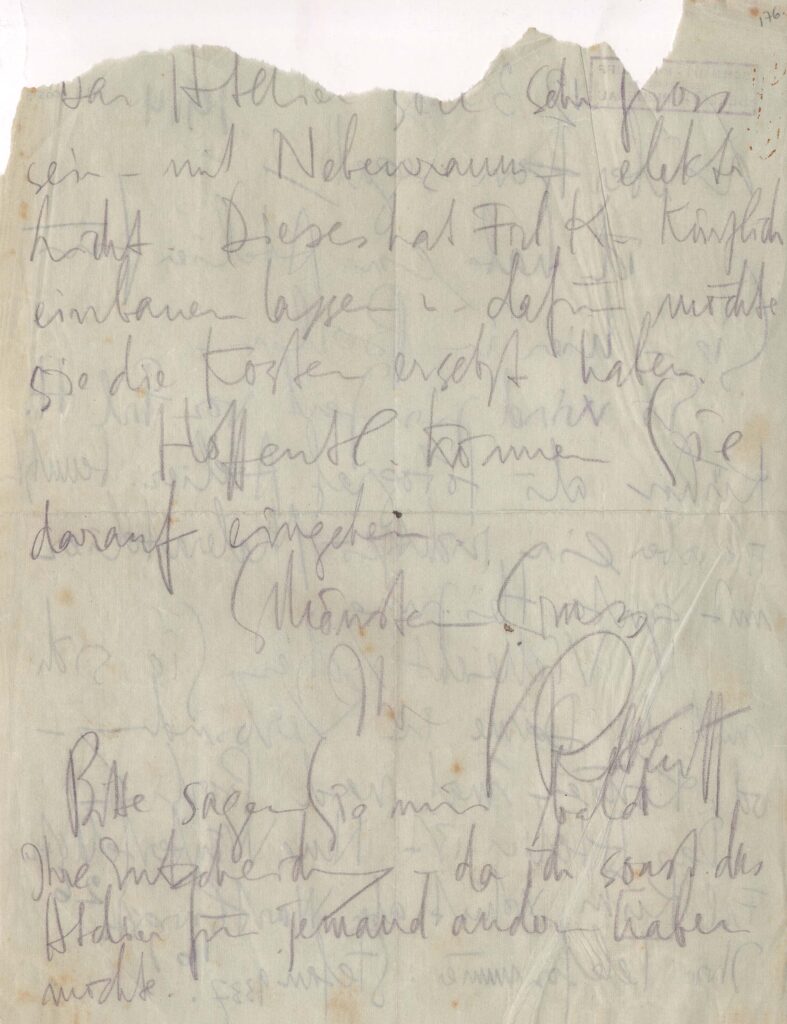 176.
Das Atelier soll sehr gross
sein – mit Nebenraum elektr
Licht. Dieses hat Frl K– kürzlich
einbauen lassen u. dafür möchte
sie die Kosten ersetzt haben.
Hoffentl. können Sie
darauf eingehen
Schönsten Gruss
Ihr
Bitte sagen Sie mir bald
Ihre Entscheidung – da ich sonst das
Atelier für jemand andern haben
möchte.